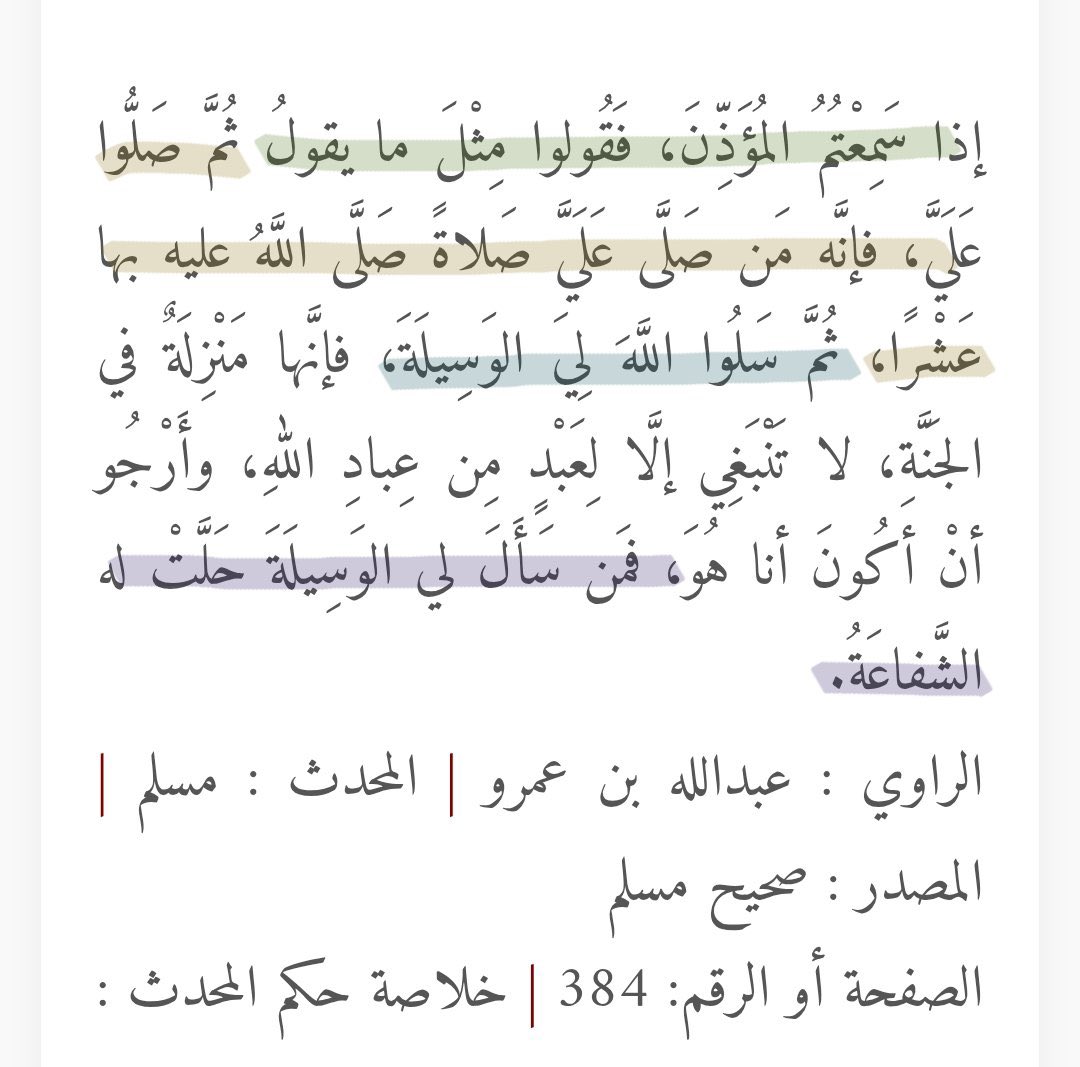 إذا سَمِعْتُمُ المُؤَذِّنَ، فَقُولوا مِثْلَ ما يقولُ ثُمَّ صَلُّوا
عَلَيَّ، فإنَّه مَن صَلَّى عَلَيَّ صَلاةً صَلَّى اللَّهُ عليه بها
عَشْرًا، ثُمَّ سَلُوا اللَّهَ لِيَ الوَسِيلَةَ، فإنَّها مَنْزِلَةٌ في
الجَنَّةِ، لا تَنْبَغِي إلَّا لِعَبْدٍ مِن عِبادِ اللهِ، وأَرْجُو
أنْ أكُونَ أنا هُوَ، فمَن سَأَلَ لي الوَسِيلَةَ حَلَّتْ له
الشَّفاعَةُ.
الراوي : عبدالله بن عمرو | المحدث : مسلم |
المصدر : صحيح مسلم
الصفحة أو الرقم: 384 | خلاصة حكم المحدث :